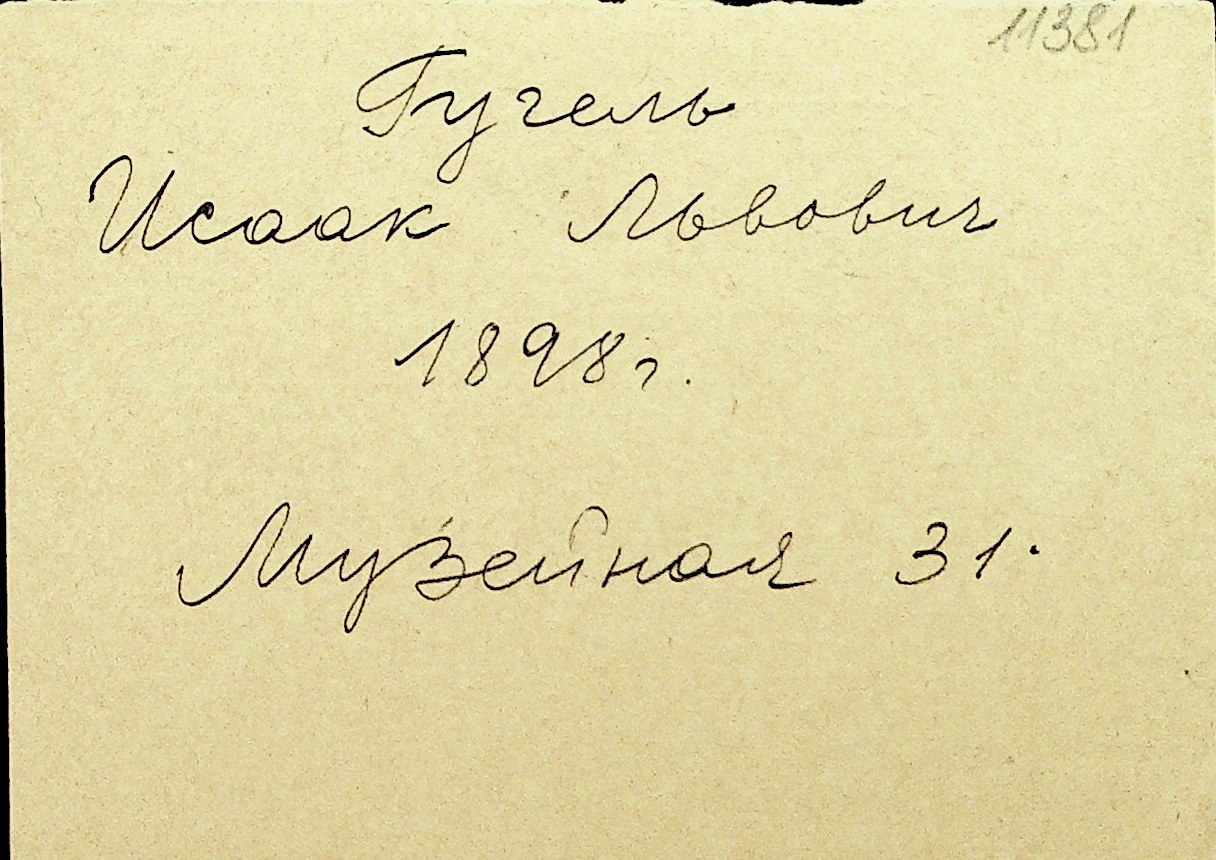 11381
Гугель
Исаак Львович
1898г.
Музейная 31.